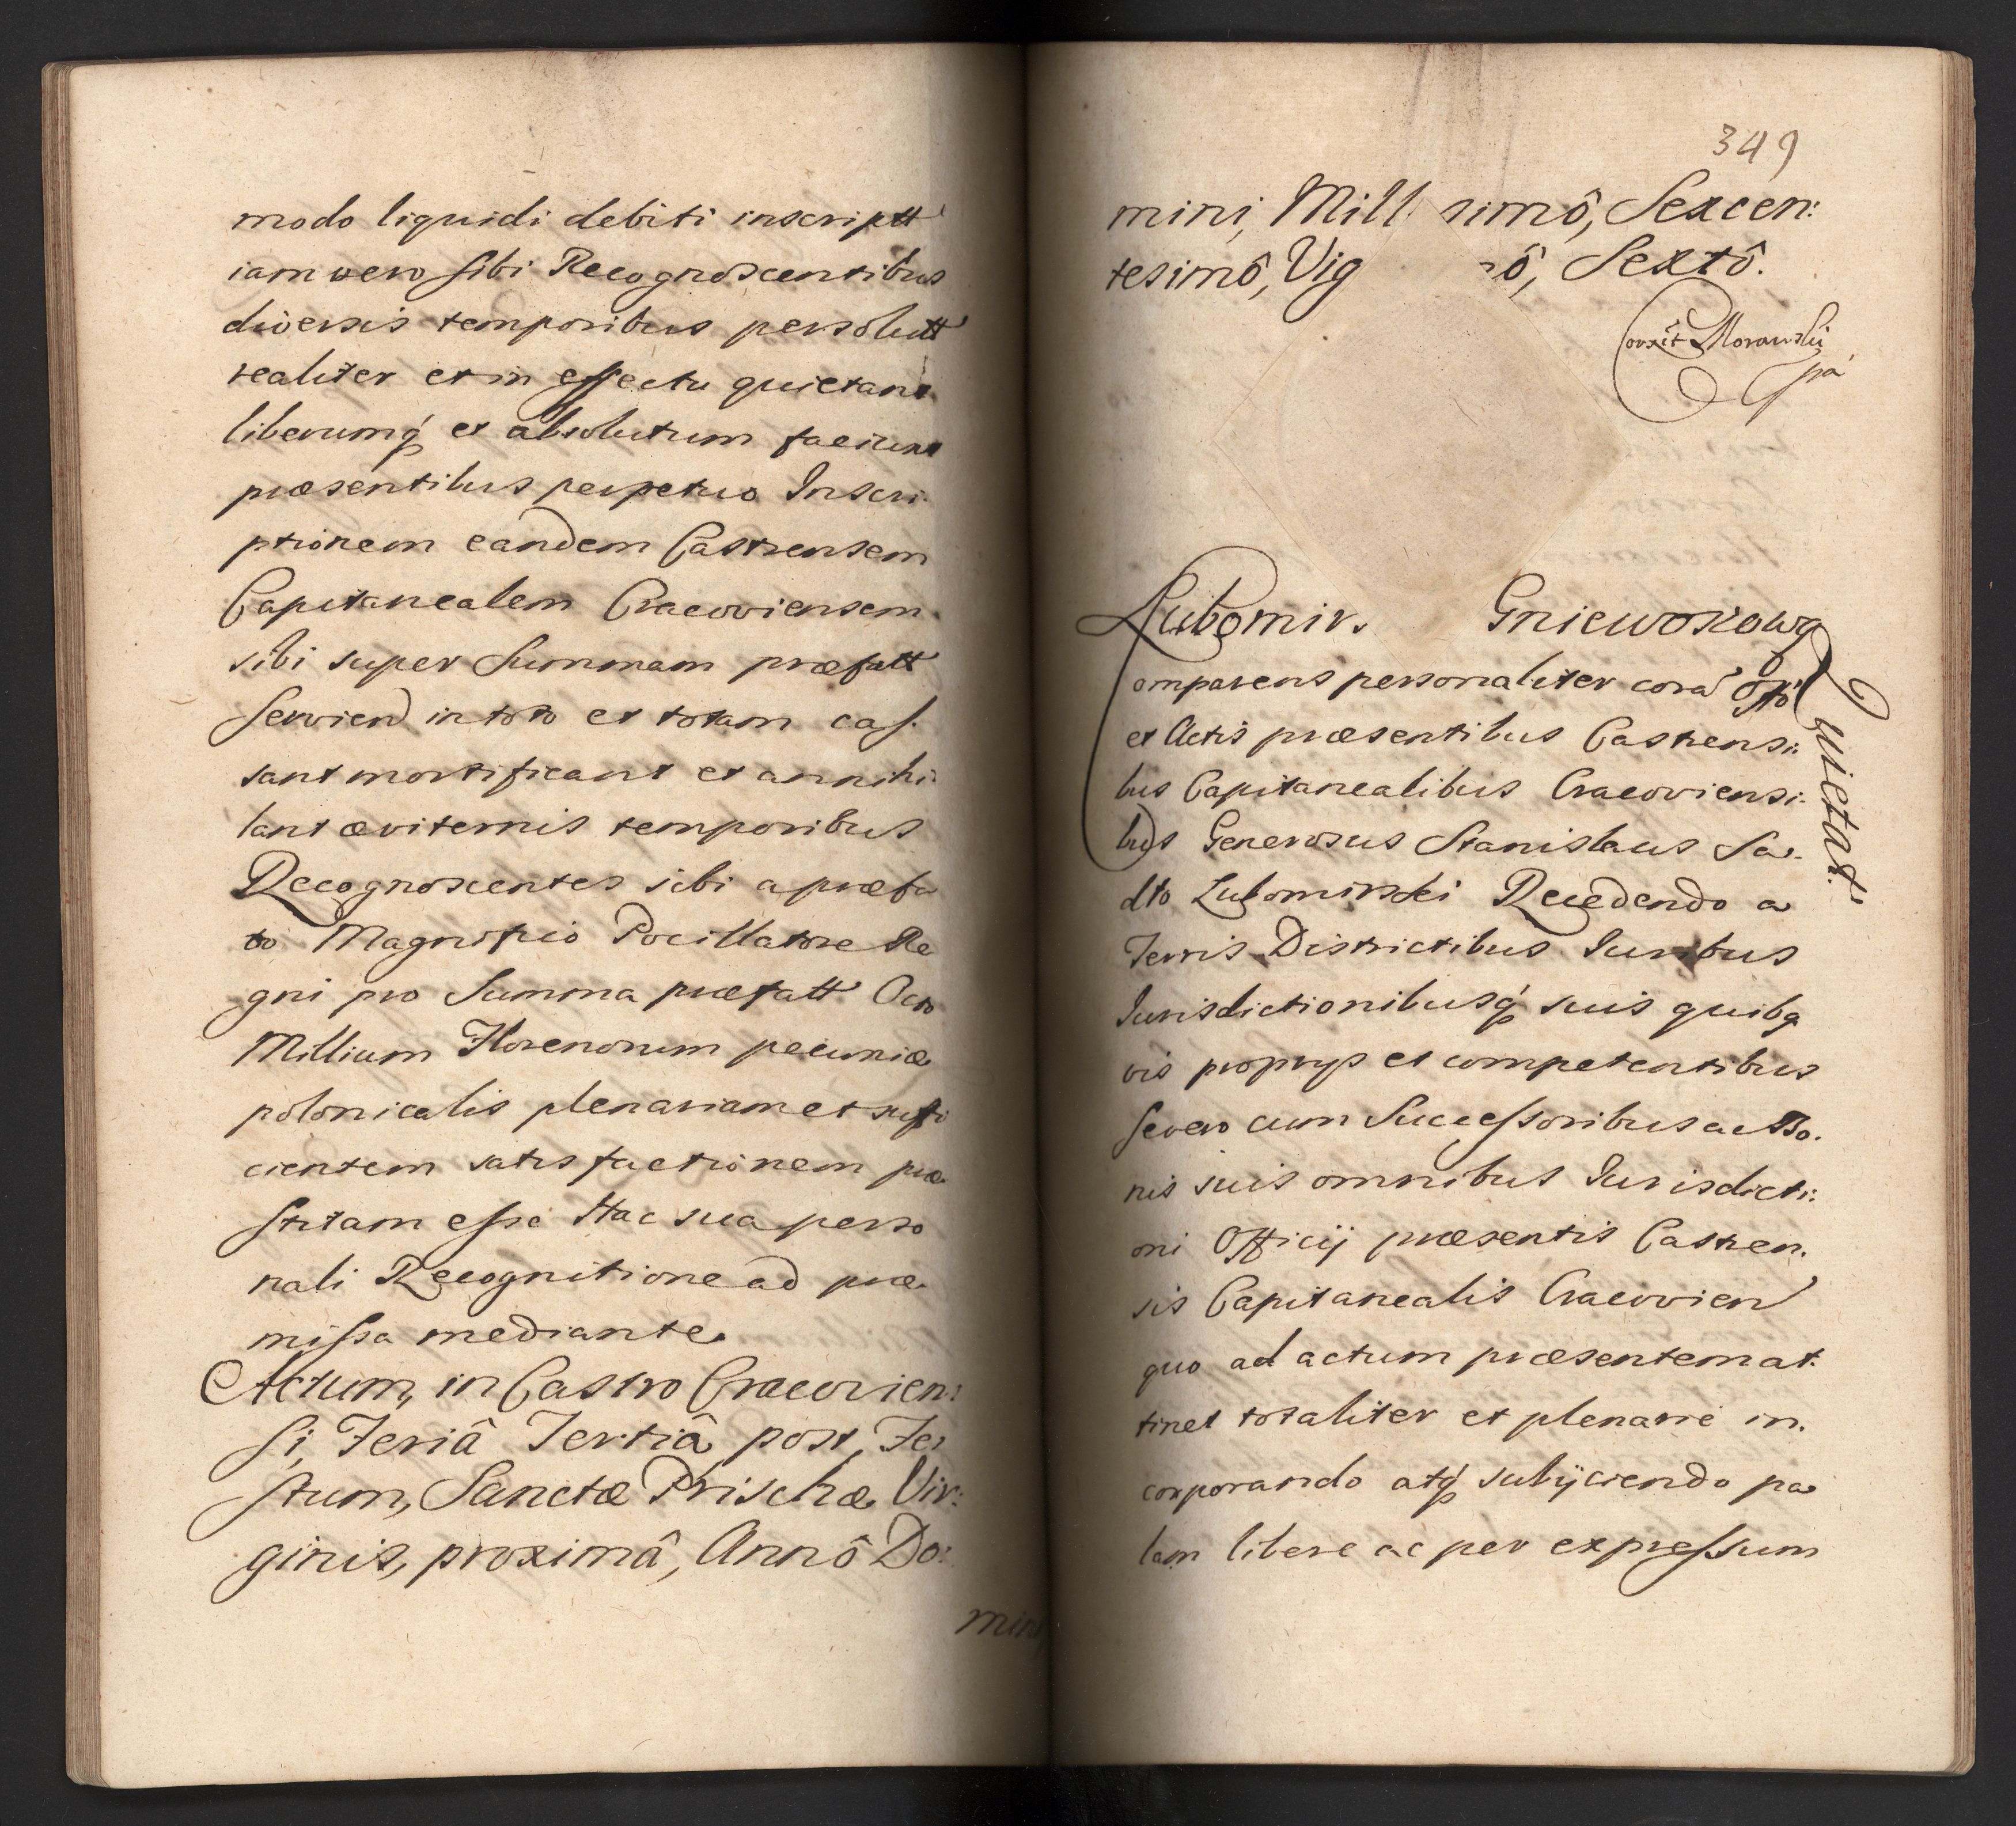 modo liquidi debiti inscriptt
iam vero sibi Recognoscentibus
diversis temporibus persolutt
realiter et in effectu quietant
liberumq́ et absolutum faciunt
præsentibus perpetuo Inscri
ptionem eandem Castrensem
Capitanealem Cracoviensem
sibi super Summam præfatt
Serviend in toto et totam cas
sant mortificant et annihi
lant æviternis temporibus
Recognoscentes sibi a præfa
to Magnifico Pocillatore Re
gni pro Summa præfatt Octo
Millium Florenorum pecuniæ
polonicalis plenariam et suffi
cientem satisfactionem præ
stitam esse Hac sua perso
nali Recognitione ad præ
missa mediante.
Actum, in Castro Cracovien:
si, Feriâ Tertiâ post, Fe
stum, Sanctæ Prischæ Vir:
ginis, proximâ, Annô Do:
mini
349
mini, Mill simô, Sexcen:
tesimô, Vig ô, Sextô.
Correxit Morawski
pa
Lubomir. Gniewoszowa
Quietat.
Comparens personaliter corā Offo
et Actis præsentibus Castrensi:
bus Capitanealibus Cracoviensi:
bus Generosus Stanislaus Sa
dlo Lubomirski Recedendo a
Terris Districtibus Iuribus
Iurisdictionibusq́ suis quibq
vis proprys et competentibus
se vero cum Successoribus ac Bo.
nis suis omnibus Iurisdicti:
oni Officij præsentis Castren.
sis Capitanealis Cracovien
quo ad actum præsentem at.
tinet totaliter et plenarie in.
corporando atq́ subijciendo pa
lam libere ac per expressum